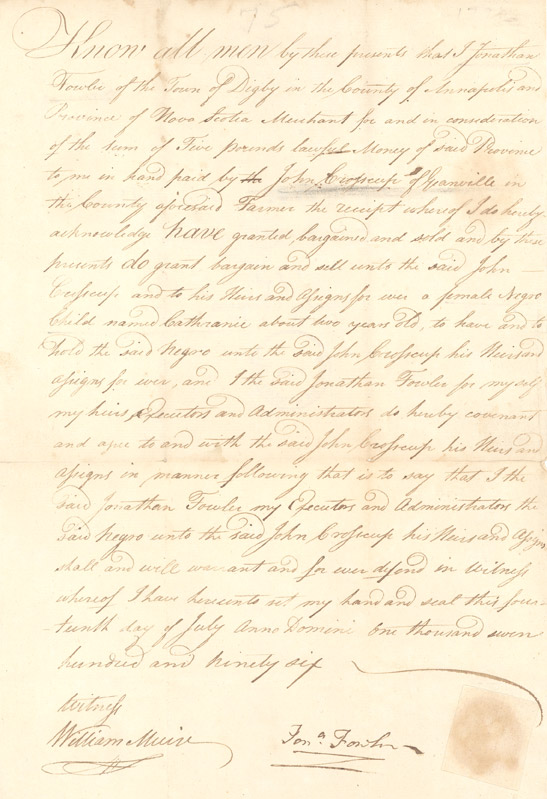 75
Know all men by these presents that I Jonathan
Fowler of the Town of Digby in the County of Annapolis and
Province of Nova Scotia Merchant for and in consideration
of the sum of Five pounds lawful Money of said Province
to me in hand paid by the John Crosscup of Granville in
the County aforesaid Farmer the receipt whereof I do hereby
acknowledge have granted, bargained and sold and by these
presents do grant bargain and sell unto the said John
Crosscup and to his Heirs and Asigns for ever a female Negro
Child named Cathranie about two years old, to have and to
hold the said Negro unto the said John Crosscup his Heirs and
asigns for ever, and I the said Jonathan Fowler for myself
my heirs, Executors and Administrators do hereby covenant
and agree to and with the said John Crosscup his Heirs an
asigns in manner following that is to say that I the
said Jonathan Fowler my Executors and Administrators the
said Negro unto the said John Crosscup his Heirs and Asigns
shall and will warrant and for ever defend in Witness
whereof I have hereunto set my hand and seal this four-
teenth day of July Anno Domini One thousand seven
hundred and Ninety six
Witness
William Muir Jona. Fowler